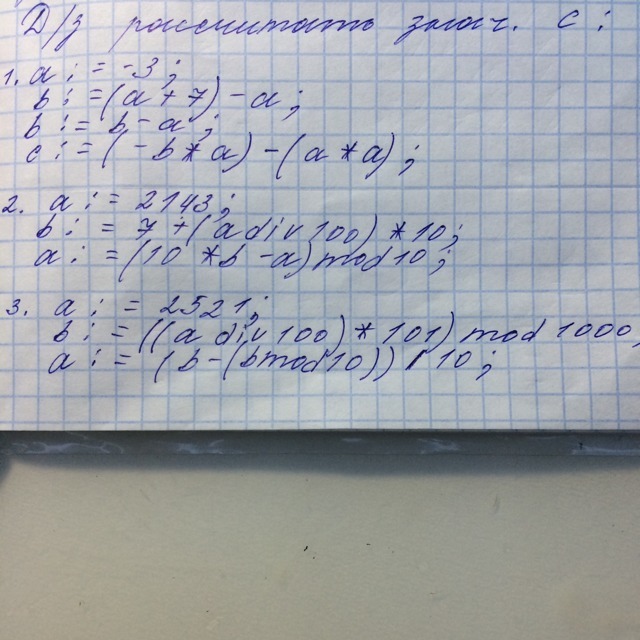 Д/з рассчитать знач. c:
1. a := -3;
b := (a + 7) - a;
b := b - a;
c := (- b * a) - (a * a);
2. a := 2143;
b := 7 + (a div 100) * 10;
a := (10 * b - a) mod 10;
3. a := 2521;
b := ((a div 100) * 101) mod 1000;
a := (b - (b mod 10)) / 10;